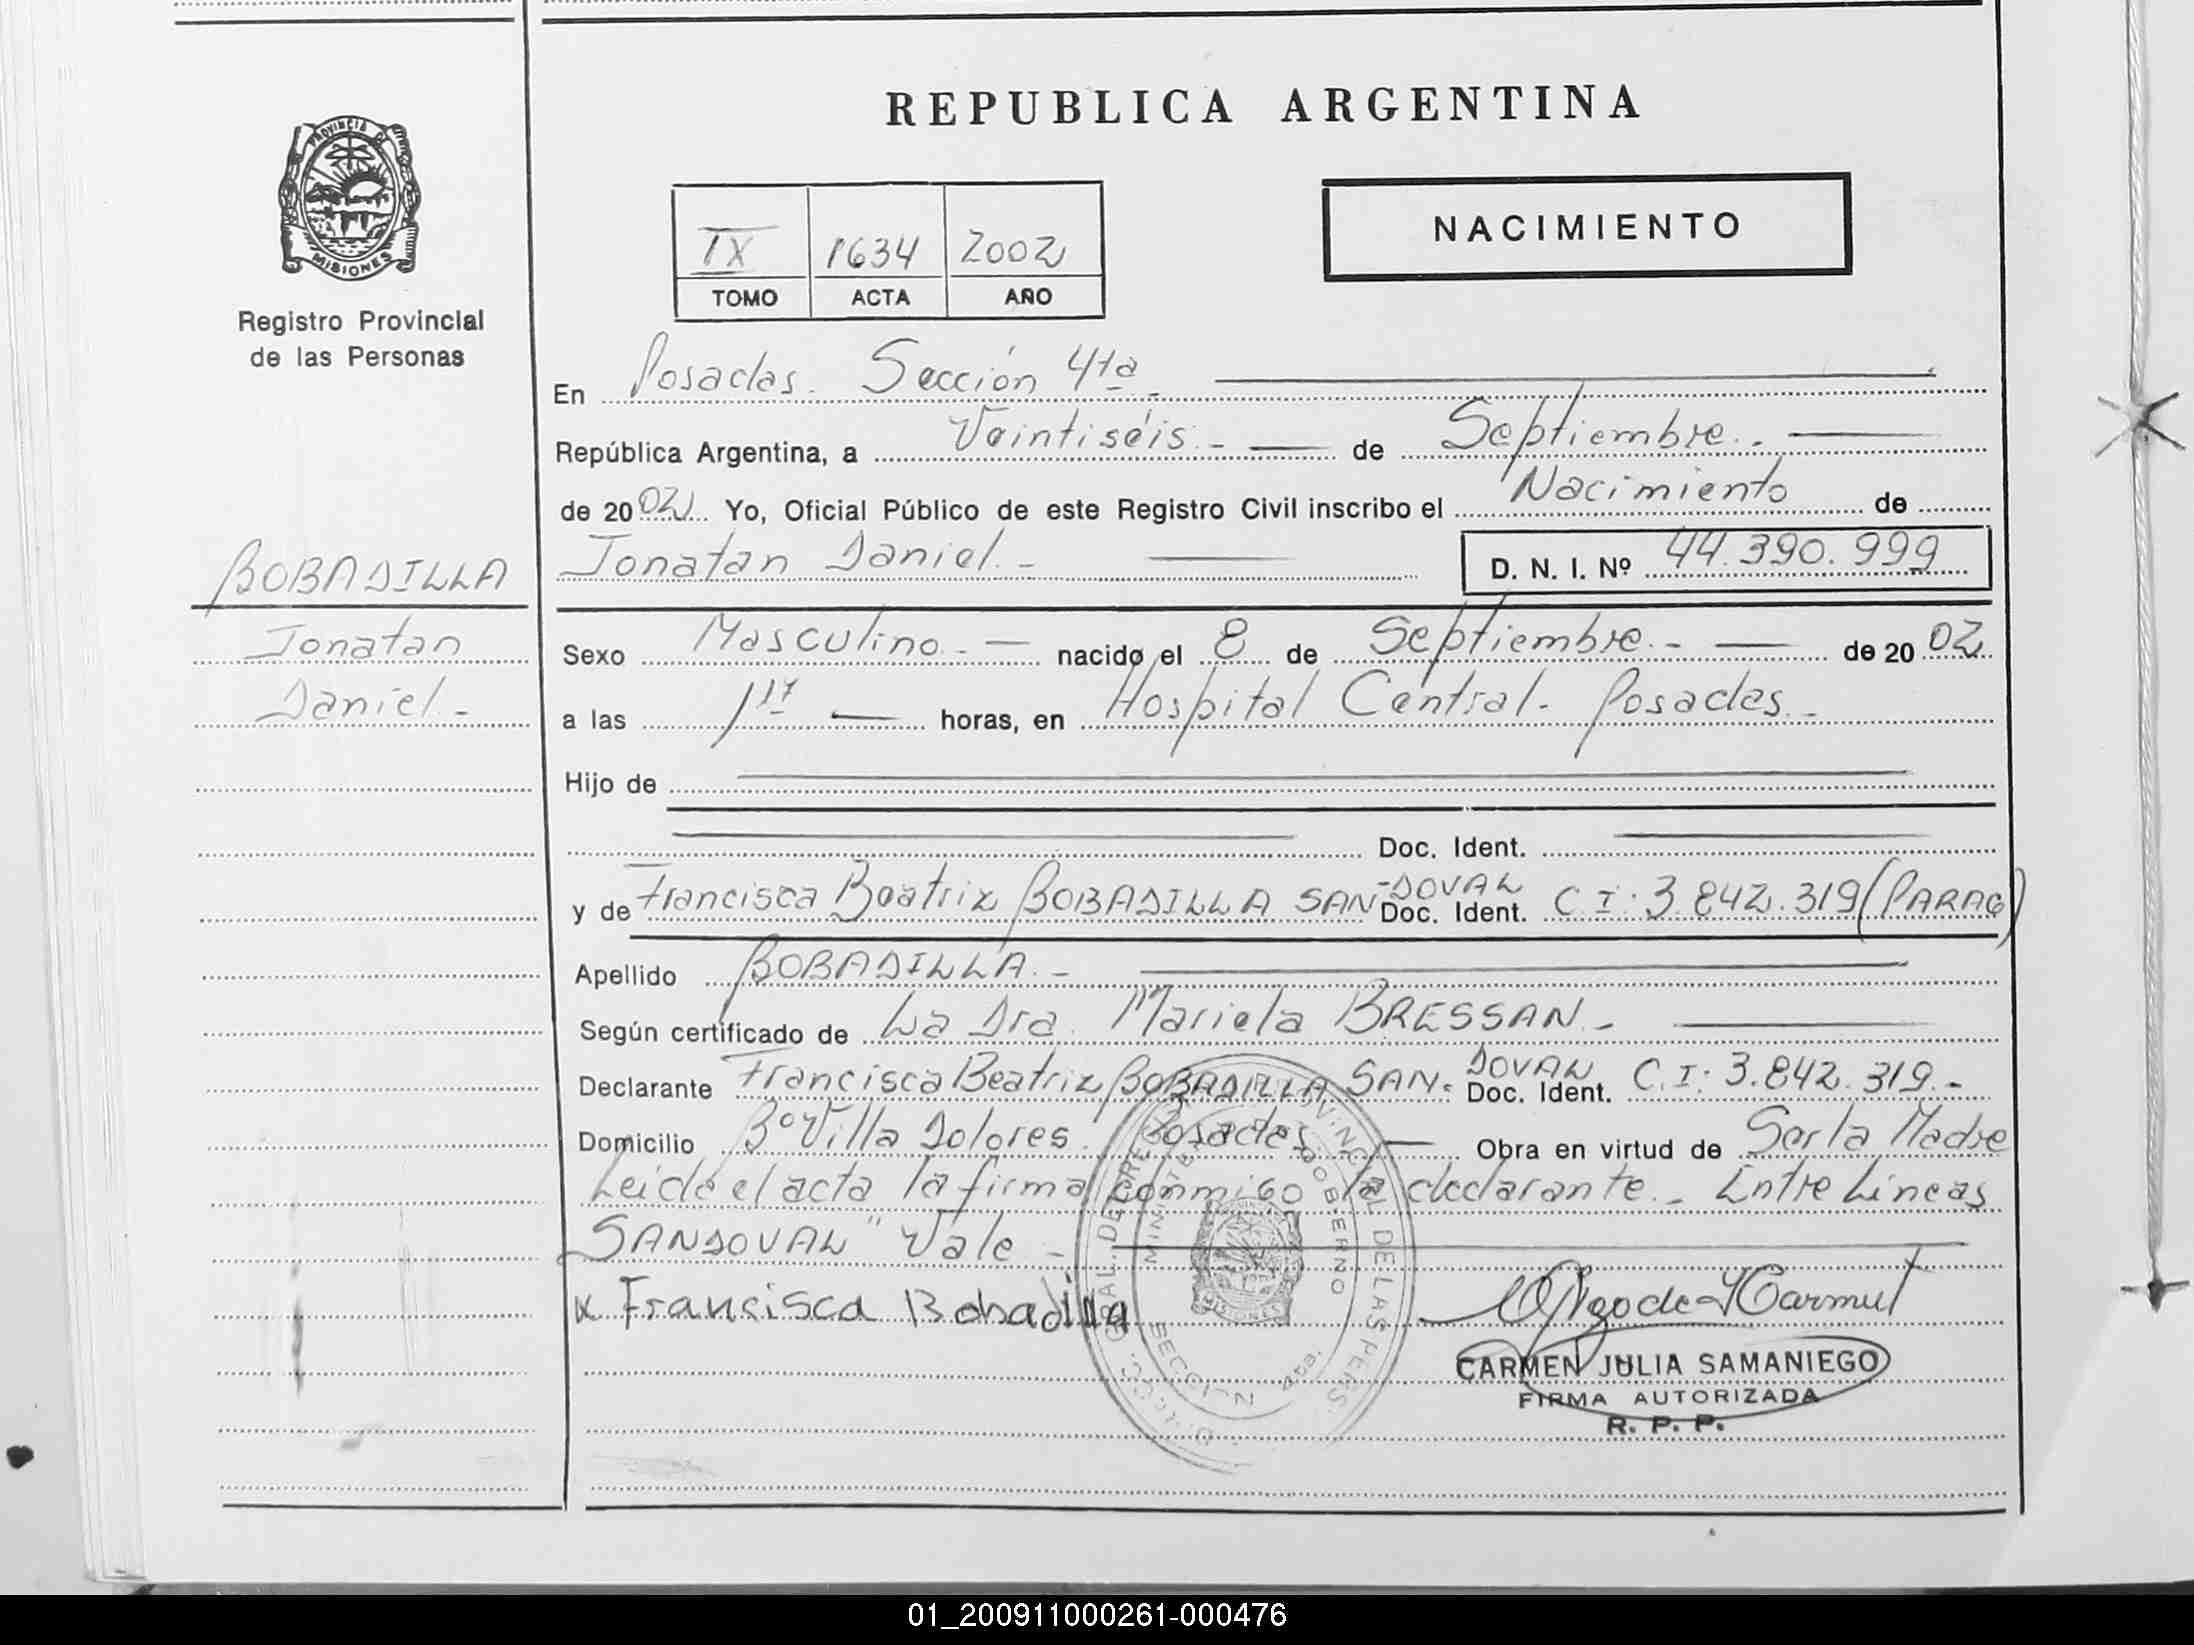 REPUBLICA ARGENTINA
PROVINCIA DE
MISIONES
Registro Provincial
de las Personas
IX 1634 2002
TOMO ACTA AÑO
NACIMIENTO
En Posadas. Sección 4ta
República Argentina, a Veintiséis.- de Septiembre.-
de 2002 Yo, Oficial Público de este Registro Civil inscribo el Nacimiento de
Jonatan Daniel.- D. N. I. Nº 44.390.999
BOBADILLA
Jonatan
Daniel.-
Sexo Masculino.- nacido el 8 de Septiembre.- de 2002
a las horas, en Hospital Central. Posadas.-
Hijo de
Doc. Ident.
y de Francisca Beatriz BOBADILLA SAN-DOVAL Doc. Ident. C I: 3.842.319 (PARAG)
Apellido BOBADILLA.-
Según certificado de La Dra. Mariela BRESSAN.-
Declarante Francisca Beatriz BOBADILLA SAN-DOVAL Doc. Ident. C.I: 3.842.319.-
Domicilio Bº Villa Dolores. Posadas. Obra en virtud de Ser la Madre
Leida el acta la firma conmigo la declarante.- Entre Lineas
SANDOVAL" Vale -
x Francisca Bobadilla
CARMEN JULIA SAMANIEGO
FIRMA AUTORIZADA
R. P. P.
MINISTERIO DE GOBIERNO
SECCION 4ta.
01_200911000261-000476